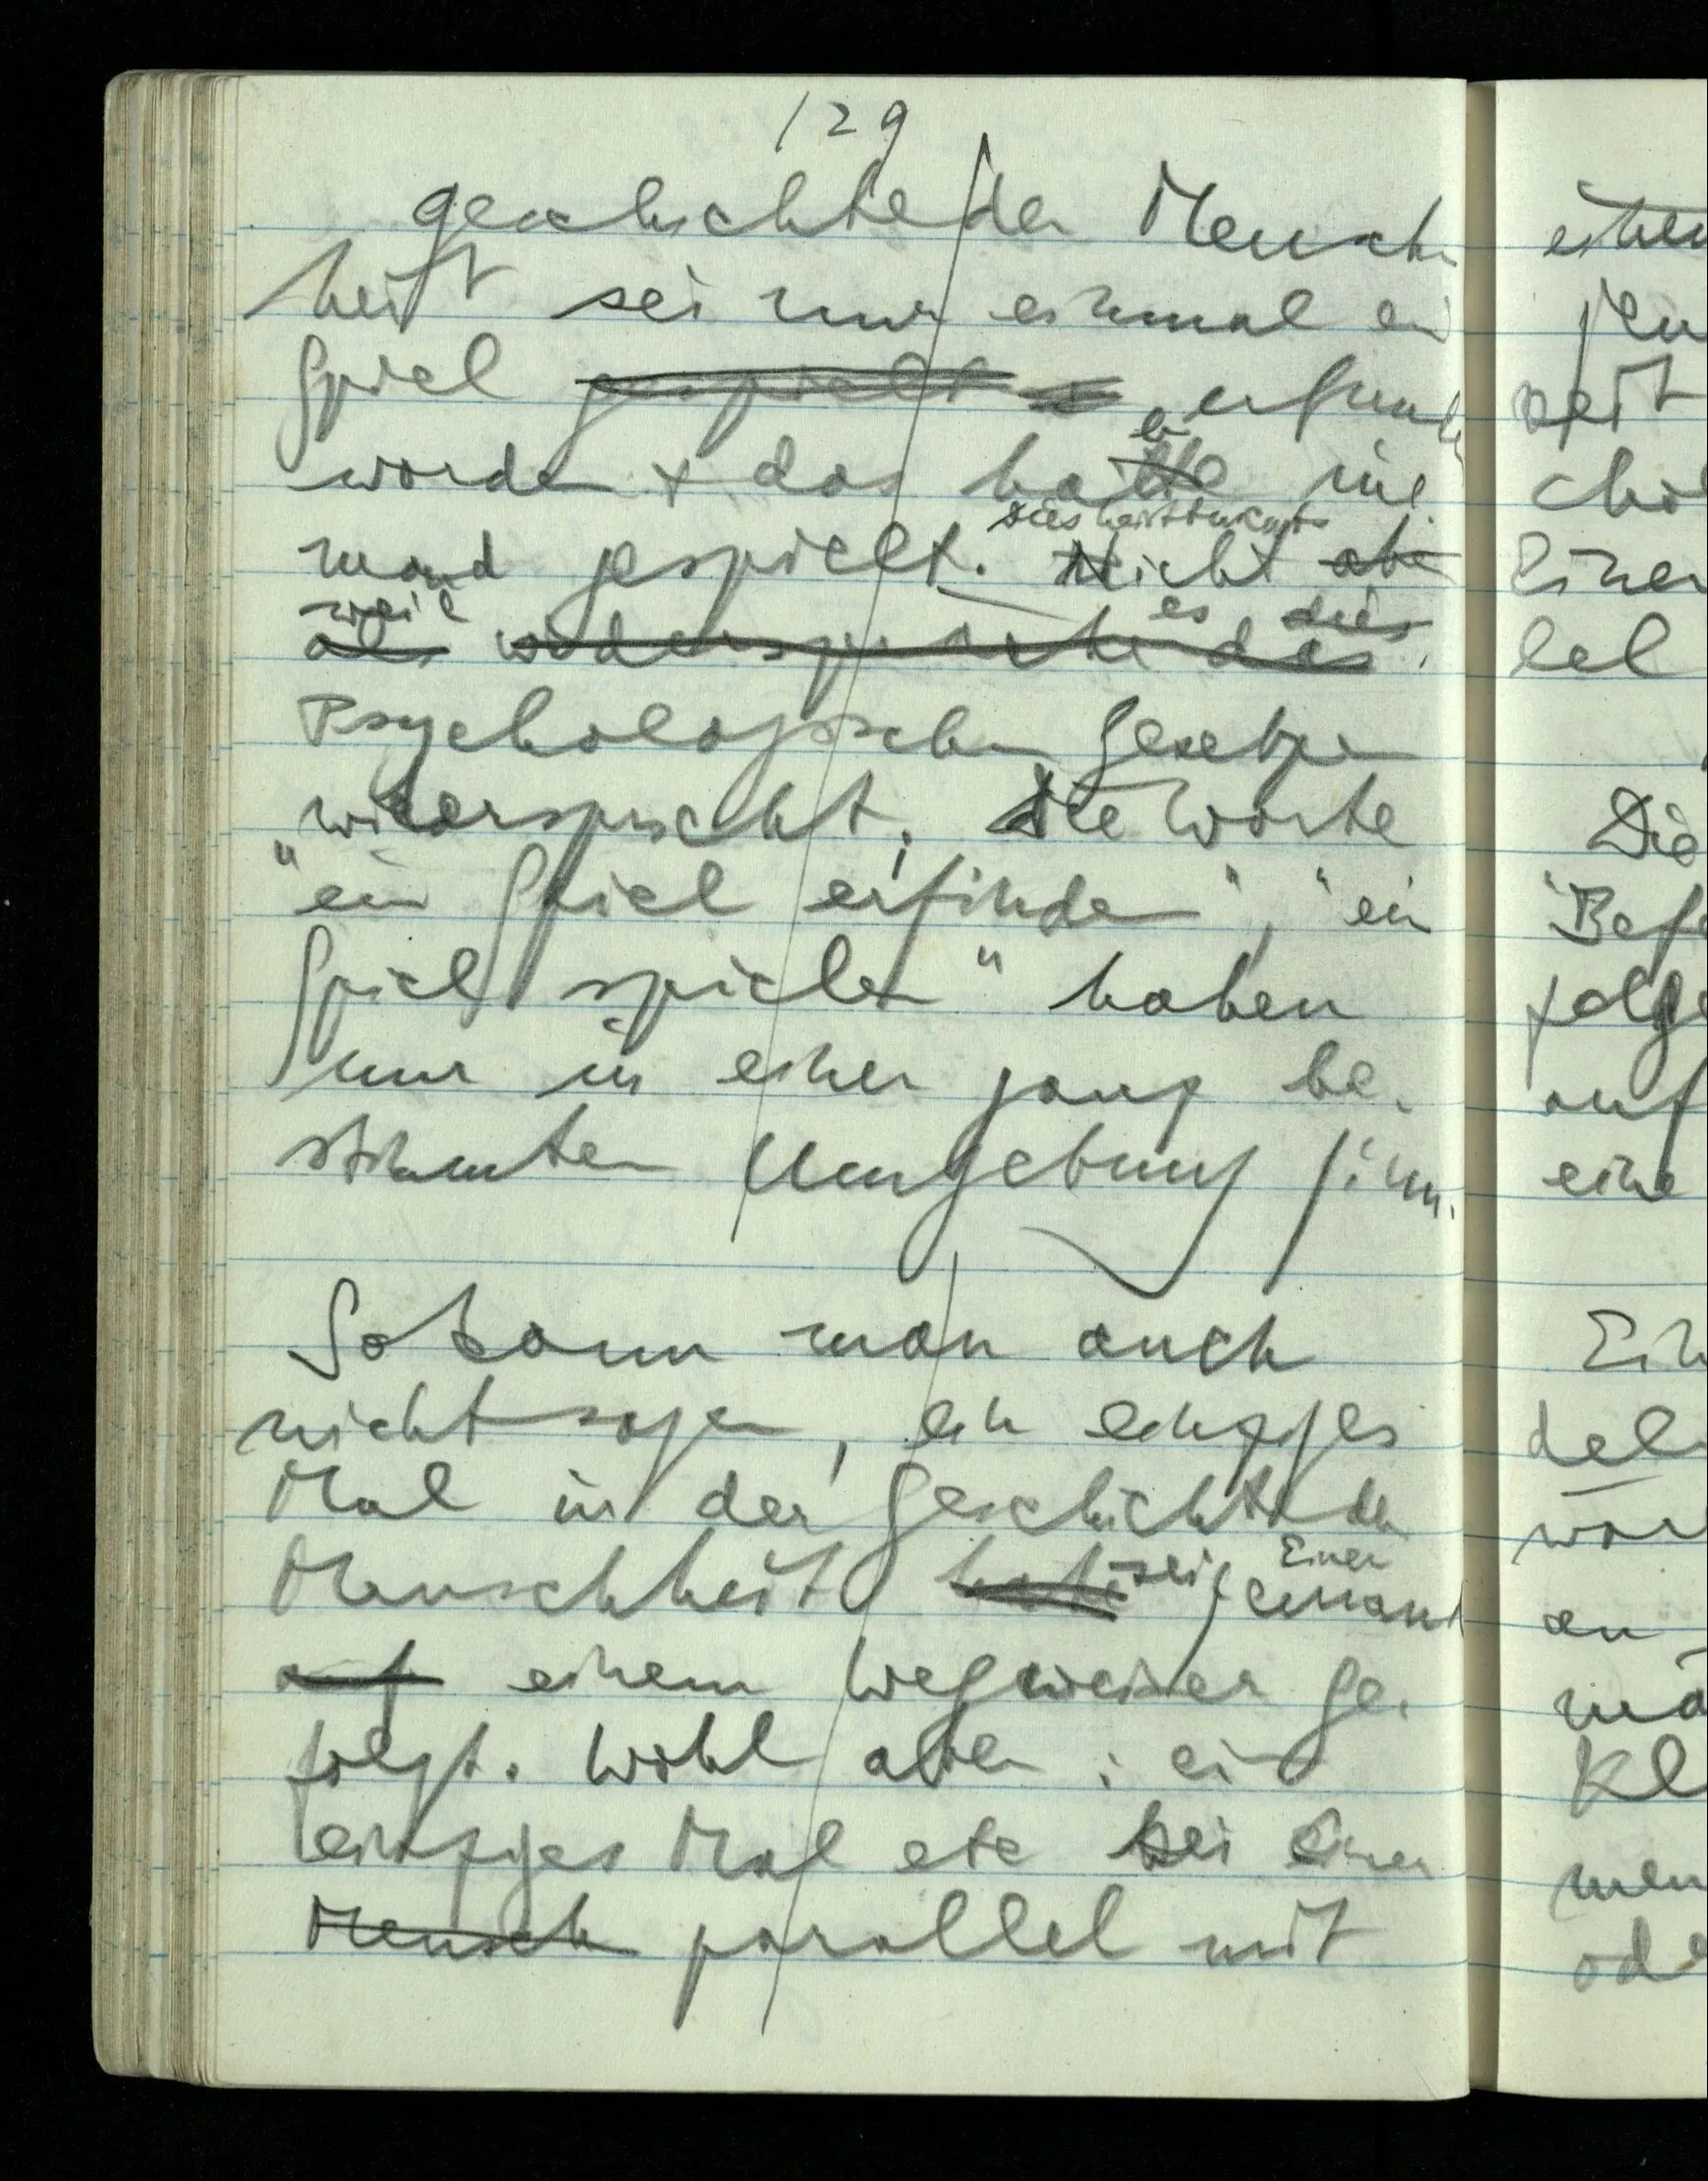 129
geschichte der Mensch
heit sei nur einmal ein
Spiel gespielt erfunden
worden + das hatte nie
b
mand gespielt. Nicht abe
dies heißt nichts
weil es dies
als widerspräche das
Psychologischen Gesetzen
widerspricht. Die Worte
"ein Spiel erfinden", "ein
Spiel spielen" haben
nur in einer ganz be-
stimmten Umgebung Sinn.
So kann man auch
nicht sagen, ein einziges
Mal in der Geschichte der
Menschheit habe sei jemand
Einer
auf einem Wegweiser ge-
folgt. Wohl aber: ein
einziges Mal etc sei Einer
Mensch parallel mit
einen
jen
zeit
Einer
lel
Die
"Bef
folge
auf
eine
Ein
del
wor
an
mä
Kl
men
ode